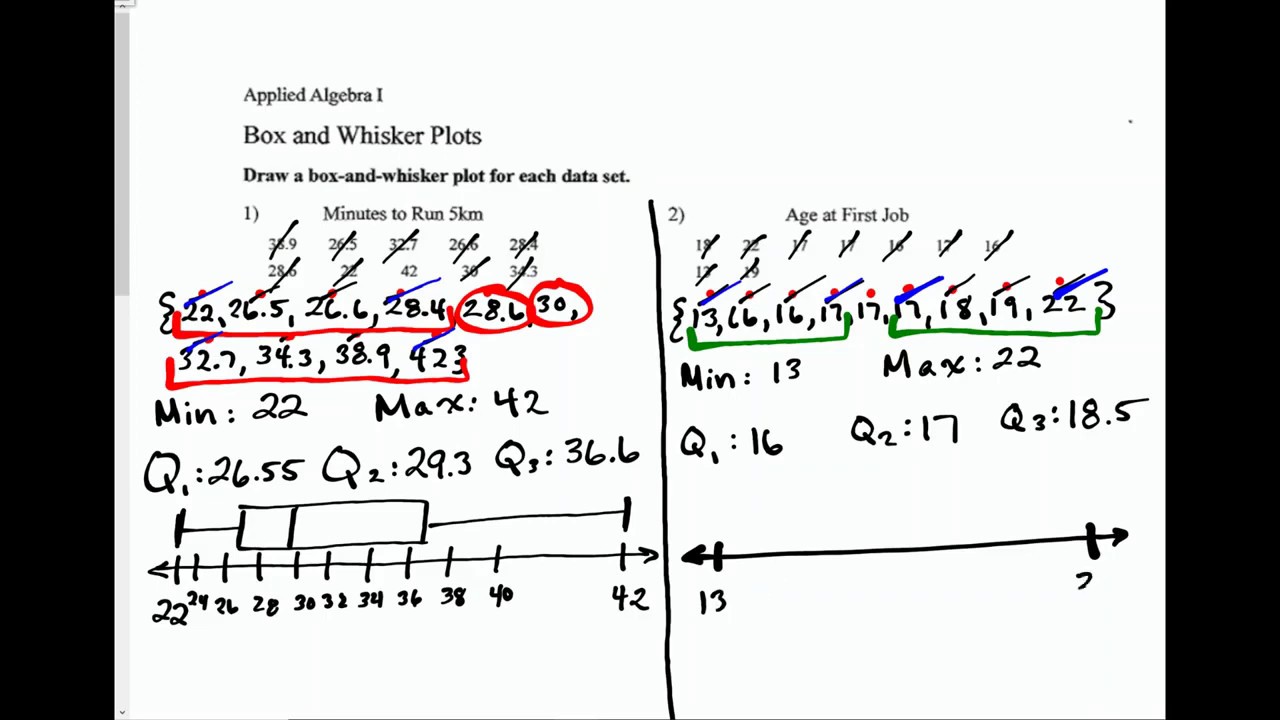 Applied Algebra I
Box and Whisker Plots
Draw a box-and-whisker plot for each data set.
1) Minutes to Run 5km
38.9 26.5 32.7 26.6 28.4
28.6 22 42 30 34.3
{22, 26.5, 26.6, 28.4, 28.6, 30,
32.7, 34.3, 38.9, 42}
Min: 22 Max: 42
Q1: 26.55 Q2: 29.3 Q3: 36.6
22 24 26 28 30 32 34 36 38 40 42
2) Age at First Job
18 22 17 17 16 17 16
13 19
{13, 16, 16, 17, 17, 17, 18, 19, 22}
Min: 13 Max: 22
Q1: 16 Q2: 17 Q3: 18.5
13 2